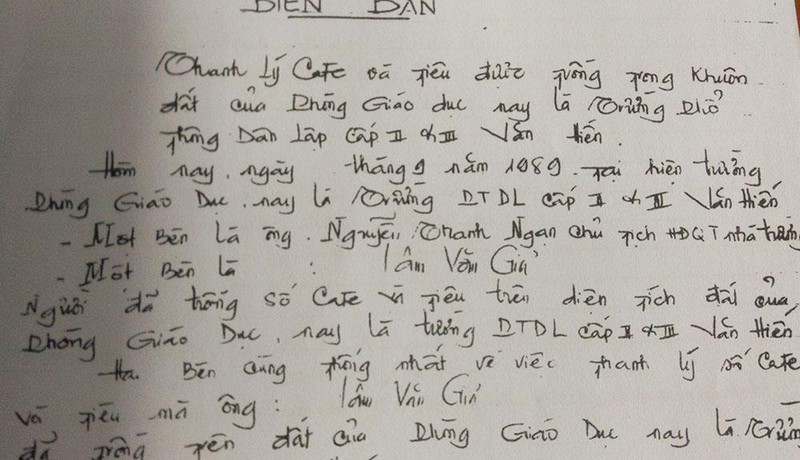 BIÊN BẢN
Thanh Lý Cafe và tiêu được trồng trong khuôn
đất của Phòng Giáo dục nay là Trường Phổ
Thông Dân Lập Cấp II & III Văn Hiến.
Hôm nay, ngày tháng 9 năm 1989. Tại hiện trường
Phòng Giáo Dục, nay là Trường PTDL Cấp II & III Văn Hiến
- Một Bên là ông. Nguyễn Thanh Ngạn chủ tịch HĐQT nhà trường
- Một Bên là : Lâm Văn Giả
Người đã trồng số Cafe và tiêu trên diện tích đất của
Phòng Giáo Dục, nay là trường PTDL Cấp II & III Văn Hiến
Hai Bên cùng thống nhất về việc thanh lý số Cafe
và tiêu mà ông : Lâm Văn Giả
đã trồng trên đất của Phòng Giáo Dục nay là Trường